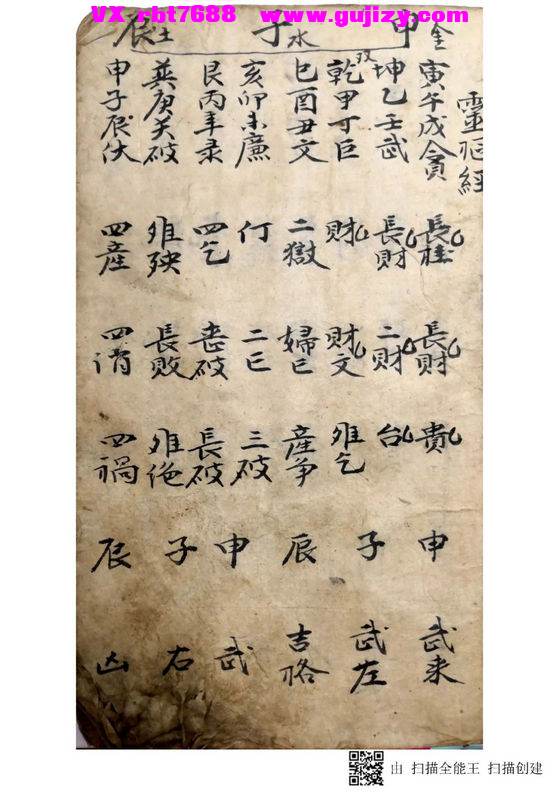 VX rbt7688　www.gujizy.com
申金
子水
辰土
靈枢經
寅午戌貪　長桂　長財　貴　申　武来
坤乙壬武　長財　二財　台　子　武左
乾甲丁巨　財　財文　瘟乞　辰　吉格
巳酉丑文　二獄　婦亡　產爭　申　武
亥卯未廉　二亡　三破　子　右
艮丙辛彔　四乞　丧破　長破　辰　凶
巽庚癸破　長敗
申子辰伏　四產　四禍
由 扫描全能王 扫描创建